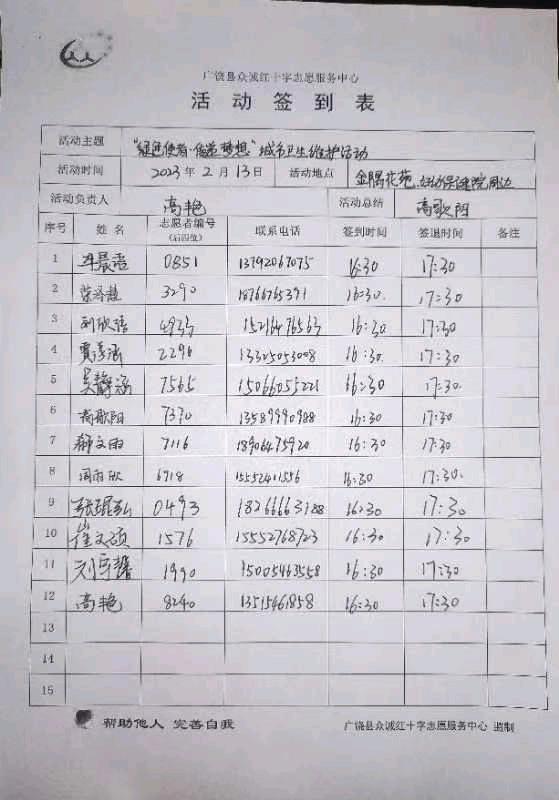 广饶县众诚红十字志愿服务中心
活动签到表
活动主题 "绿色使者·传递梦想"城市卫生维护活动
活动时间 2023年2月13日 活动地点 金腾花苑、妇幼保健院周边
活动负责人 高艳 活动总结 高歌阳
序号 姓名 志愿者编号 (后四位) 联系电话 签到时间 签退时间 备注
1 0851 13792067075 16:30 17:30
2 3290 18766765391 16:30. 17:30
3 刘欣语 15216476563 16:30 17:30
4 贾淳涵 2296 13325053008 16:30 17:30
5 吴静涵 7565 15066055221 16:30 17:30.
6 高歌阳 7370 13589990988 16:30 17:30
7 文雨 7116 18906475920 16:30 17:30
8 周雨欣 6718 15552411556 16:30 17:30.
9 张琨弘 0493 18266663188 16:30 17:30
10 崔文硕 1576 15552768723 16:30 17:30
11 刘宇馨 1990 15005463558 16:30 17:30
12 高艳 8240 13515461858 16:30 17:30
13
14
15
帮助他人 完善自我 广饶县众诚红十字志愿服务中心 监制